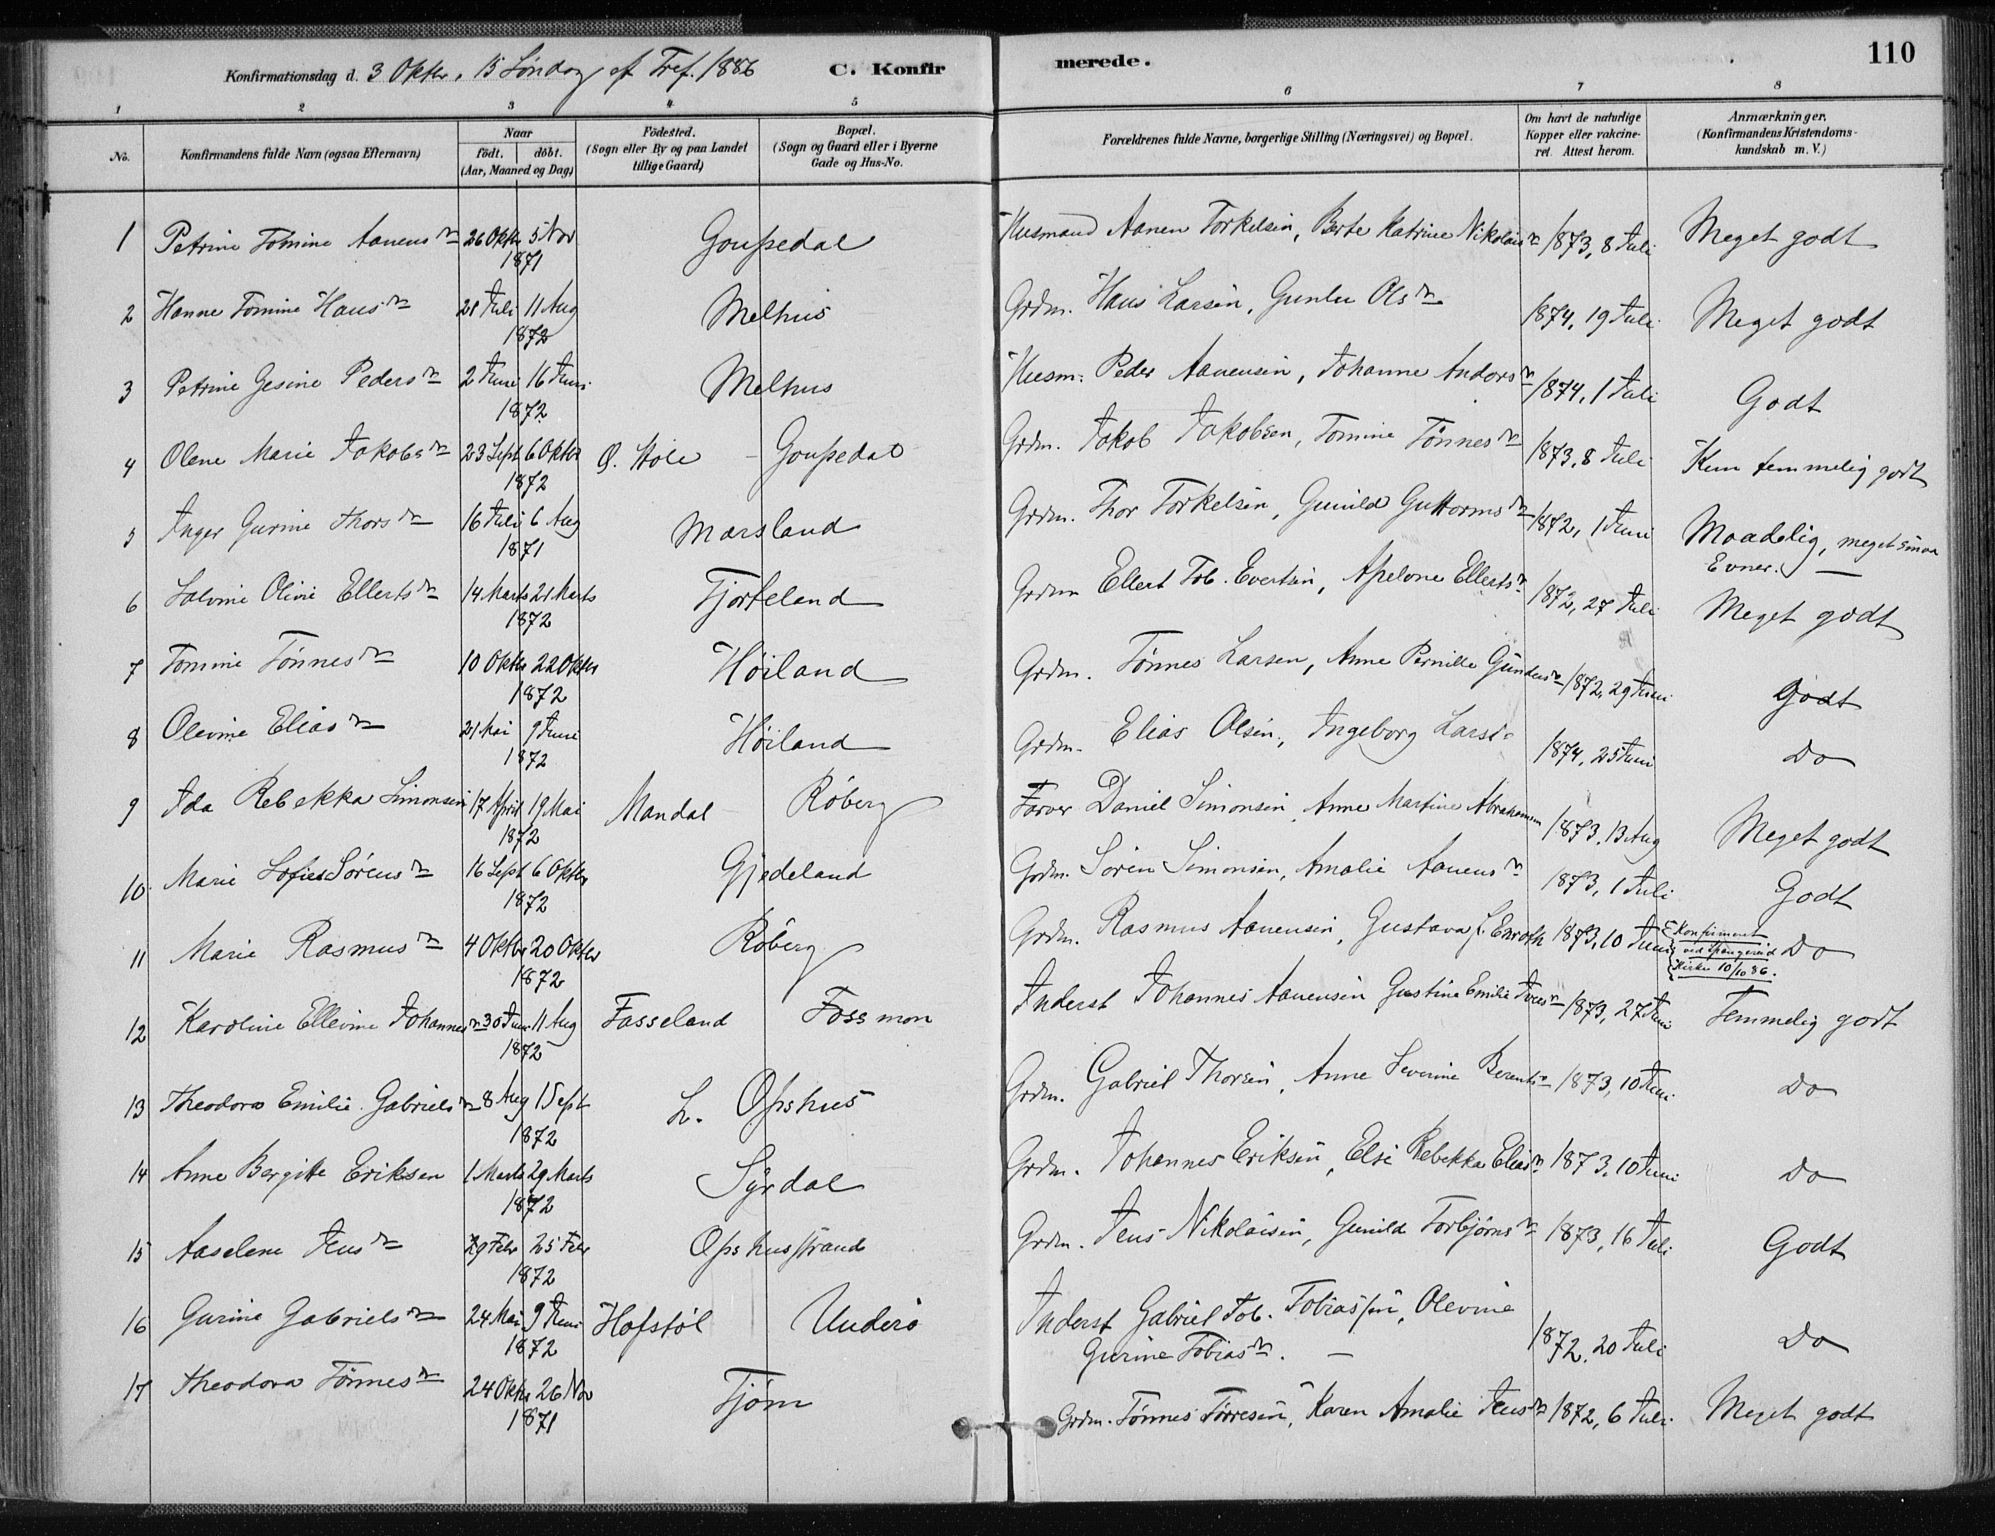 Konfirmationsdag d. 3 Oktbr. 15 Søndag ef Tref. 1886 C. Konfirmerede. 110
1 2 3 4 5 6 7 8
No. Konfirmandens fulde Navn (ogsaa Efternavn) Naar födt. döbt. (Aar, Maaned og Dag) Födested. (Sogn eller By og paa Landet tillige Gaard) Bopæl. (Sogn og Gaard eller i Byerne Gade og Hus-No. Forældrenes fulde Navne, borgerlige Stilling (Næringsvei) og Bopæl. Om havt de naturlige Kopper eller vakcineret. Attest herom. Anmærkninger. (Konfirmandens Kristendomskundskab m. V.)
1 Petrine Tomine Aanensdr 26 Oktbr 5 Nov 1871 Goupedal Husmand Aanen Torkelsen, Berte Katrine Nikolaisdr 1873, 8 Juli Meget godt
2 Hanne Tomine Hansdr 21 Juli 11 Aug 1872 Melhus Grdm. Hans Larsen, Gunlu Olsdr 1874, 19 Juli Meget godt
3 Petrine Gesine Pedersdr 2 Juni 16 Juni 1872 Melhus Husm. Peder Aanensen, Johanne Andorsdr 1874, 1 Juli Godt
4 Olene Marie Jakobsdr 23 Sept 6 Oktbr 1872 Ø. Hole - Goupedal Grdm. Jakob Jakobsen, Tomine Tönnesdr 1873, 8 Juli Kun temmelig godt
5 Inger Gurine Thorsdr 16 Juli 6 Aug 1871 Marsland Grdm. Thor Torkelsen, Gunild Guttormsdr 1872, 1 Juni Maadelig, meget smaa Evner. -
6 Salvine Olivie Ellertsdr 14 Marts 21 Marts 1872 Tjorteland Grdm Ellert Tob. Evertsen, Apelone Ellertsdr 1872, 27 Juli Meget godt
7 Tomine Tönnesdr 10 Oktbr 22 Oktbr 1872 Höiland Grdm. Tönnes Larsen, Anne Pernille Gundersdr 1872, 29 Juni Godt
8 Olevine Eliasdr 21 Mai 9 Juni 1872 Höiland Grdm. Elias Olsen, Ingeborg Larsd. 1874, 25 Juni Do
9 Ida Rebekka Simonsen 17 April 19 Mai 1872 Mandal Röberg Farver Daniel Simonsen, Anne Martine Abrahamsen 1873, 13 Aug Meget godt
10. Marie Sofie Sörensdr 16 Sept 6 Oktbr 1872 Gjedeland Grdm. Sören Simonsen, Amalie Aanensdr 1873, 1 Juli Godt
11 Marie Rasmusdr 4 Oktbr 20 Oktbr 1872 Röberg Grdm. Rasmus Aanensen, Gustava f. Enroth 1873, 10 Juni Konfirmeret ved Spangereid Kirke 10/10 86. Do
12 Karoline Ellevine Johannesdr 30 Juni 11 Aug 1872 Fasseland Fossmon Inderst Johannes Aanensen Gustine Emilie Iversdr 1873, 27 Juni Temmelig godt
13 Theodora Emilie Gabrielsdr 8 Aug 1 Sept 1872 L. Opshus Grdm. Gabriel Thorsen, Anne Severine Berentsdr 1873, 10 Juni Do
14 Anne Bergitte Eriksen 1 Marts 29 Marts 1872 Syrdal Grdm. Johannes Eriksen, Elsi Rebekka Eliasdr 1873, 10 Juni Do
15 Aaselene Jensdr 29 Febr 25 Febr 1872 Opshusstrand Grdm. Jens Nikolaisen, Gunild Torbjörnsdr 1873, 16 Juli Godt
16 Gurine Gabrielsdr 24 Mai 9 Juni 1872 Hofstöl Underö Inderst Gabriel Tob. Tobiassen, Olevine Gurine Tobiasdr. - 1872, 20 Juli Do
17 Theodora Tönnesdr 24 Oktbr 26 Nov 1871 Tjöm Grdm. Tönnes Törresen, Karen Amalie Jensdr 1872, 6 Juli Meget godt